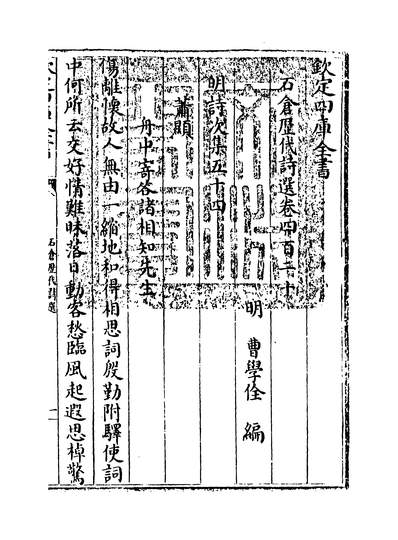 欽定四庫全書
石倉歷代詩選卷四百二十
明 曹學佺 編
明詩次集五十四
蕭顯
舟中寄答諸相知先生
傷離懷故人無由一縮地和得相思詞殷勤附驛使詞
中何所云交好情難昧落日動客愁臨風起遐思棹驚
欽定四庫全書
石倉歷代詩選
一